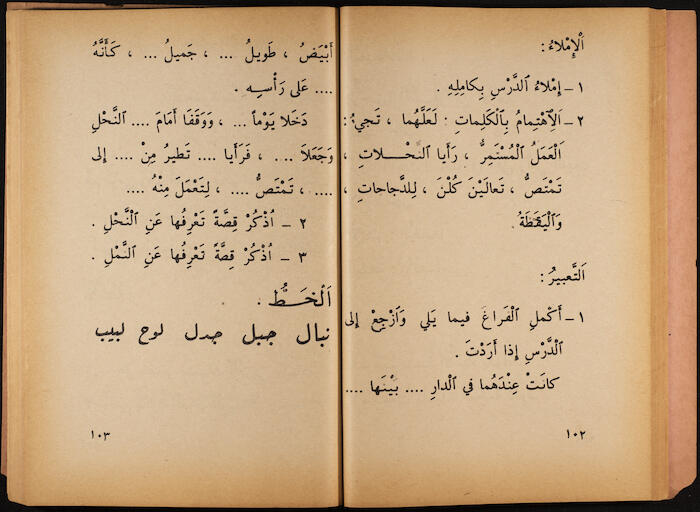 اَلْإِمْلَاءُ :
١ - إِمْلَاءُ الدَّرْسِ بِكامِلِهِ .
٢ - اَلْاِهْتِمامُ بِالْكَلِماتِ : لَعَلَّهُما ، تَجيءُ :
اَلْعَمَلُ الْمُسْتَمِرُّ ، رَأَيا النَّحْلاتِ ،
تَمْتَصُّ ، تَعالَيْنَ كُلْنَ ، لِلدَّجاجاتِ ،
وَالْيَقَظَةُ .
اَلتَّعْبيرُ :
١ - أَكْمِلِ الْفَراغَ فيما يَلي وَارْجِعْ إِلى
الدَّرْسِ إِذا أَرَدْتَ .
كانَتْ عِنْدَهُما في الْدارِ .... بَيْنَها ....
١٠٢
أَبْيَضُ ، طَويلُ ... ، جَميلُ ... ، كَأَنَّهُ
.... عَلى رَأْسِهِ .
دَخَلا يَوْماً ... ، وَوَقَفا أَمَامَ .... النَّحْلِ
وَجَعَلاَ .... ، فَرَأَيا .... تَطيرُ مِنْ .... إِلى
.... ، تَمْتَصُّ .... ، لِتَعْمَلَ مِنْهُ ....
٢ - اُذْكُرْ قِصَّةً تَعْرِفُها عَنِ النَّحْلِ .
٣ - اُذْكُرْ قِصَّةً تَعْرِفُها عَنِ النَّمْلِ .
اَلْخَطُّ .
نبال جبل جدل لوح لبيب
١٠٣